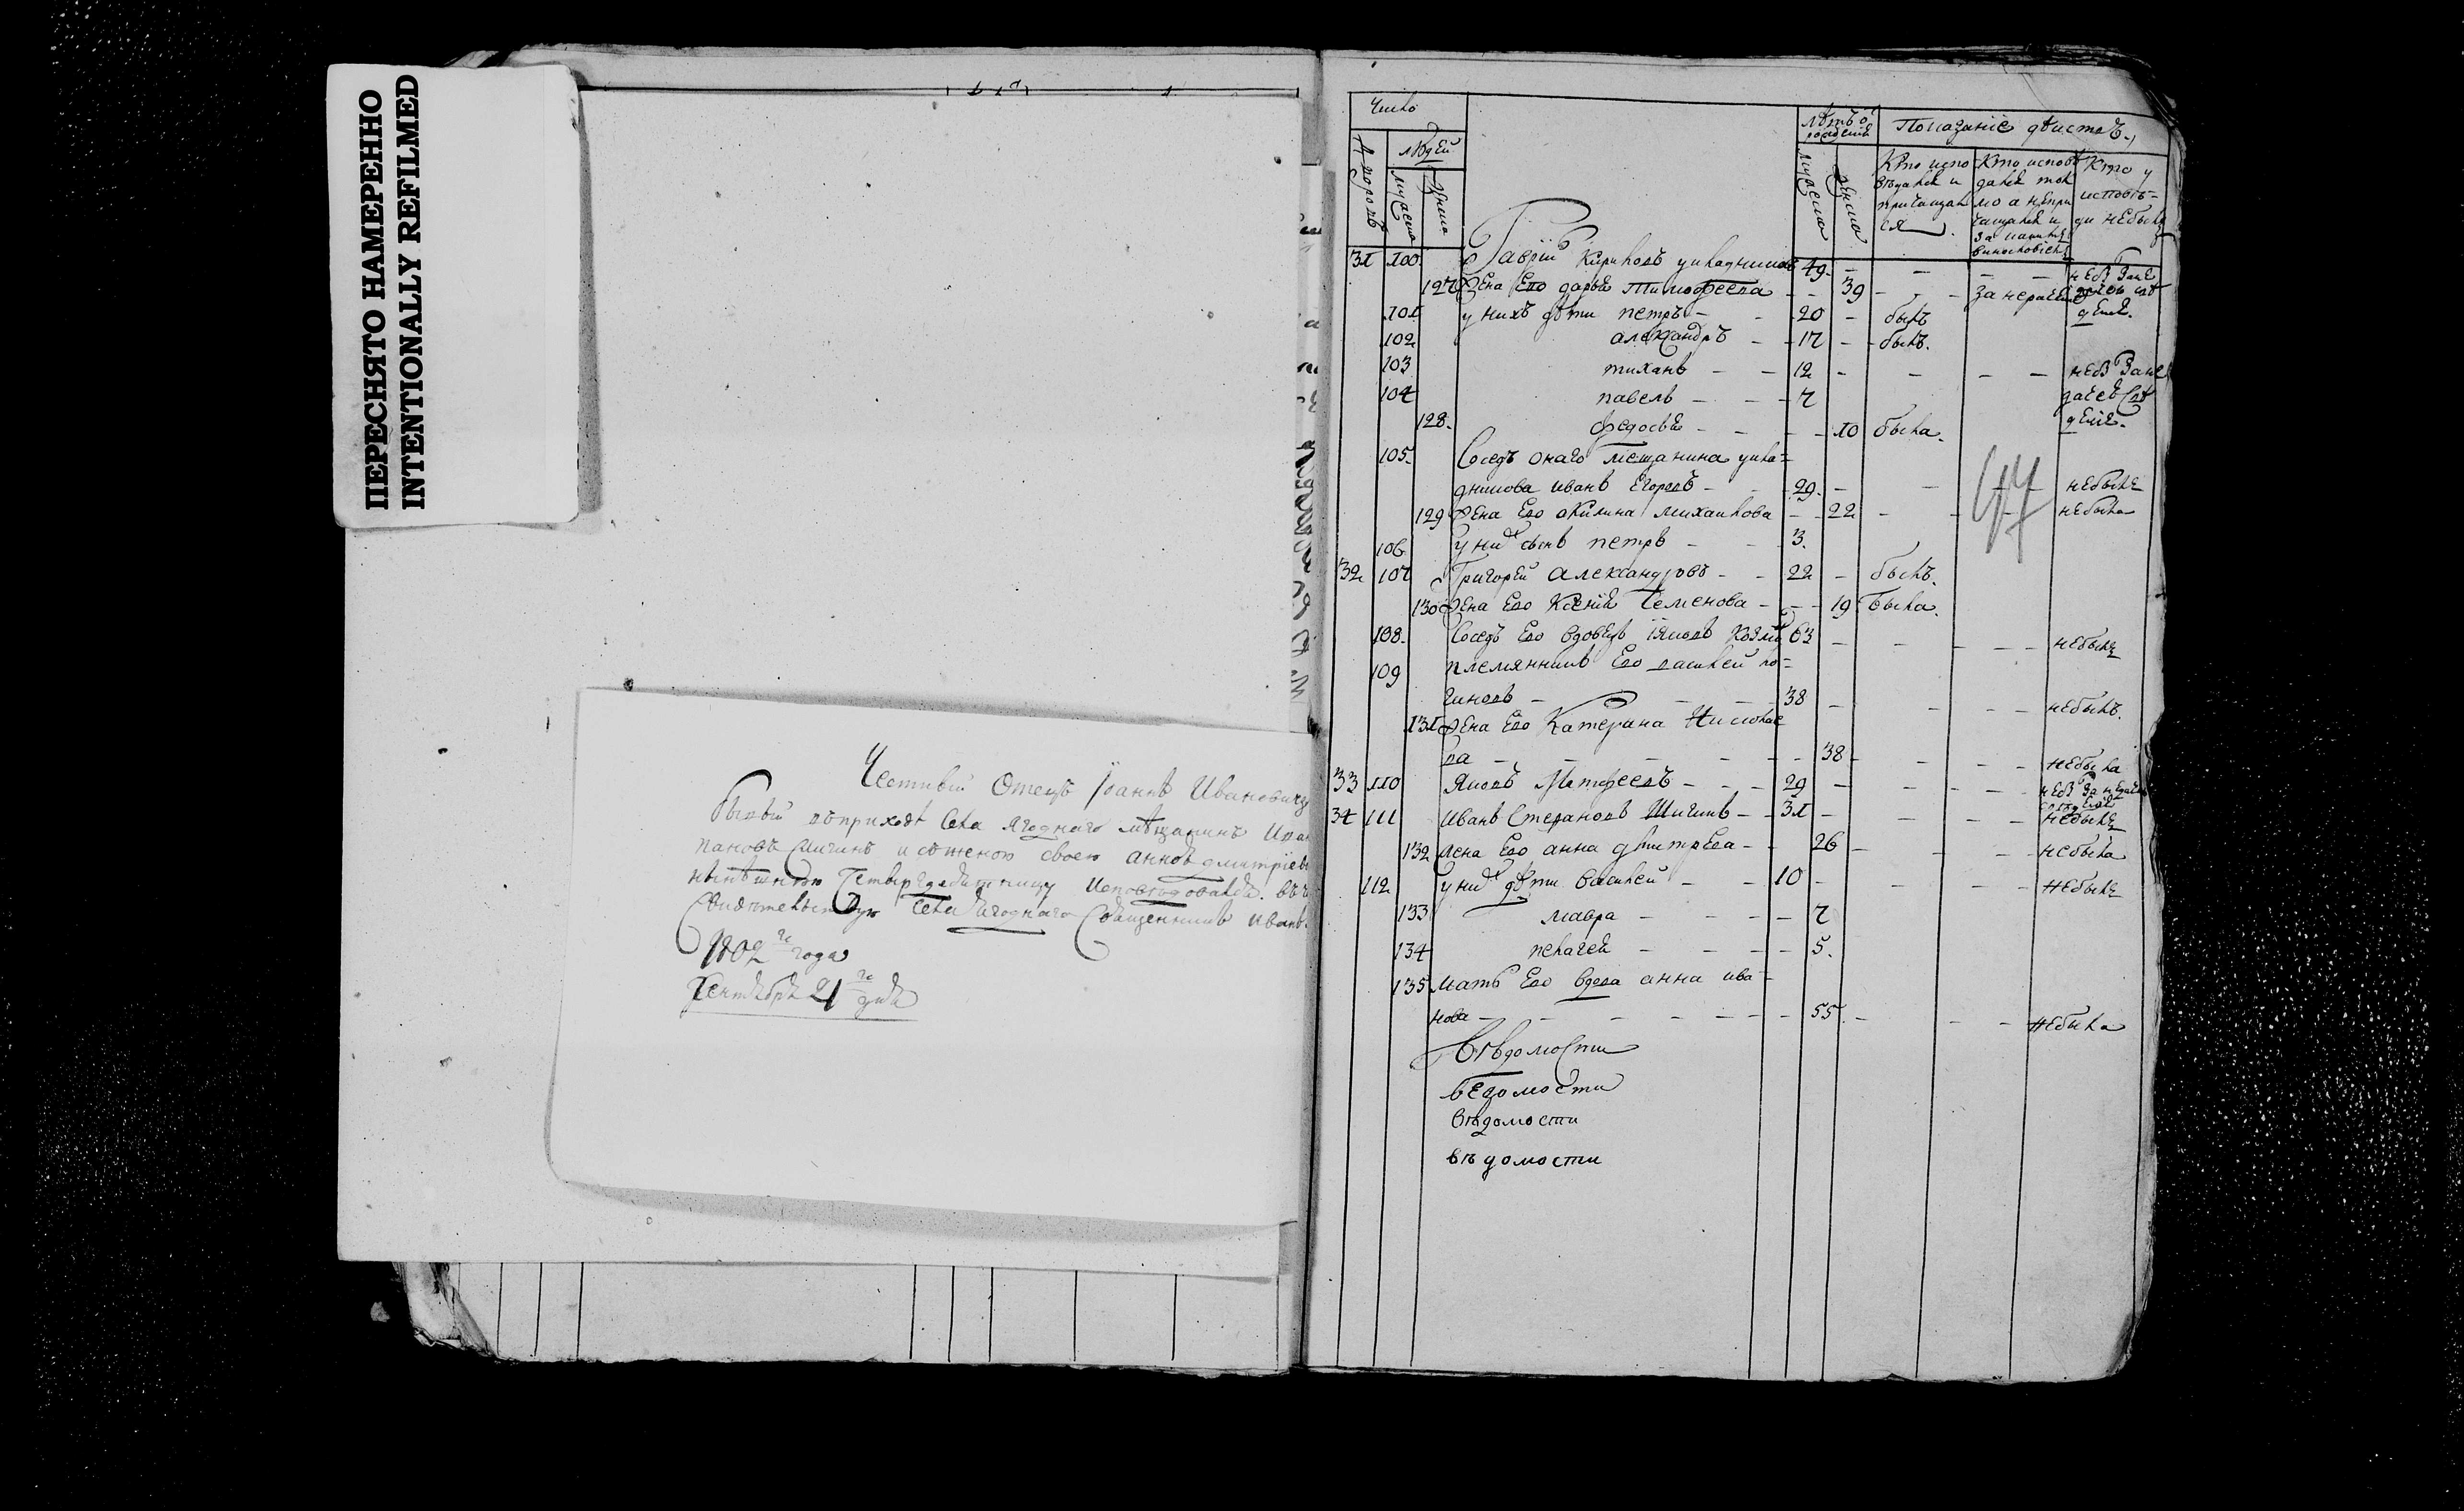 ПЕРЕСНЯТО НАМЕРЕННО
INTENTIONALLY REFILMED
Честный Отецъ Iоаннъ Ивановичь
бывый въ приходѣ села Ягоднаго мѣщанинъ Иван
пановъ Шигинъ и съ женою своею анною дмитрiев
нынѣшнюю четыредесятницу исповѣдовался. въ ч
свидѣтельствую села Ягоднаго Священникъ Иванъ
1802 го года
Сентября 21 го дня
Число
лѣтъ о рожденiя
Показанiе дѣйства
дворовъ
людей
мужеска
женска
мужеска
женска
Кто испо
вѣдался и
причащал
ся
Кто исповѣ
дался ток
мо а непри
чащался и
за какимъ
винословiемъ
Кто у
исповѣ=
ди небылъ
31 100 Гаврiй Кириловъ укладниковъ 49 - - - -
127 Жена Его дарья Тимофеева - - 39 - - -
101 у нихъ дѣти петръ - - 20 - былъ
102 александръ - - 17 - - былъ.
103 тиханъ - - 12 - - - -
104 павелъ - - - 7
128. федосья - - - - 10 была.
105. Сосѣдъ онаго мещанина укла=
дникова иванъ Егоровъ - - 29. - - небылъ
129 Жена Его акилина михаилова - - 22 - - - небыла
106 у них сынъ петръ - - 3.
32 107 Григорей александровъ - - 22 - былъ.
130 Жена Его Ксенiя Семенова - - - 19 была.
108. Сосѣдъ Его вдовецъ iяковъ Козми 63 - - - - - небылъ
109 племянникъ Его василей ло=
гиновъ - - - - 38 - - - - небылъ.
131 Жена Его Катерина Николае
ва - - - - - - 38 - - - - небыла
33 110 Яковъ Матфеевъ - - - 29 - - - -
34 111 Иванъ Степановъ Шигинъ - - 31 - - - - небылъ
132 жена Его анна дмитрева - - 26 - - - небыла
112 у них дѣти василей - - 10 - - - - небылъ
133 мавра - - - - 7
134 пелагея - - - - 5.
135 мать Его вдова анна ива=
нова - - - - - - - 55. - - - небыла
вѣдомости
ведомости
вѣдомости
вѣдомости